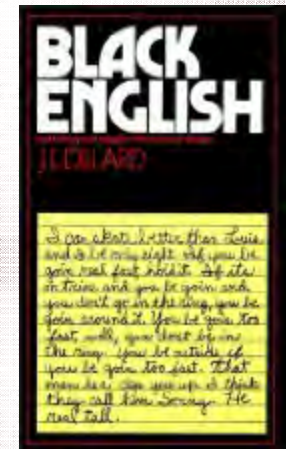 BLACK
ENGLISH
J.L. DILLARD
I can skate better than Louis
and I be only eight. If you be
goin real fast, hold it. If it's
on trios and you be goin and
you don't go in the ring, you be
goin around it. You be goin too
fast, well, you don't be in
the ring. You be outside if
you be goin too fast. That
man he a clip you up. I think
they call him Sonny. He
real tall.